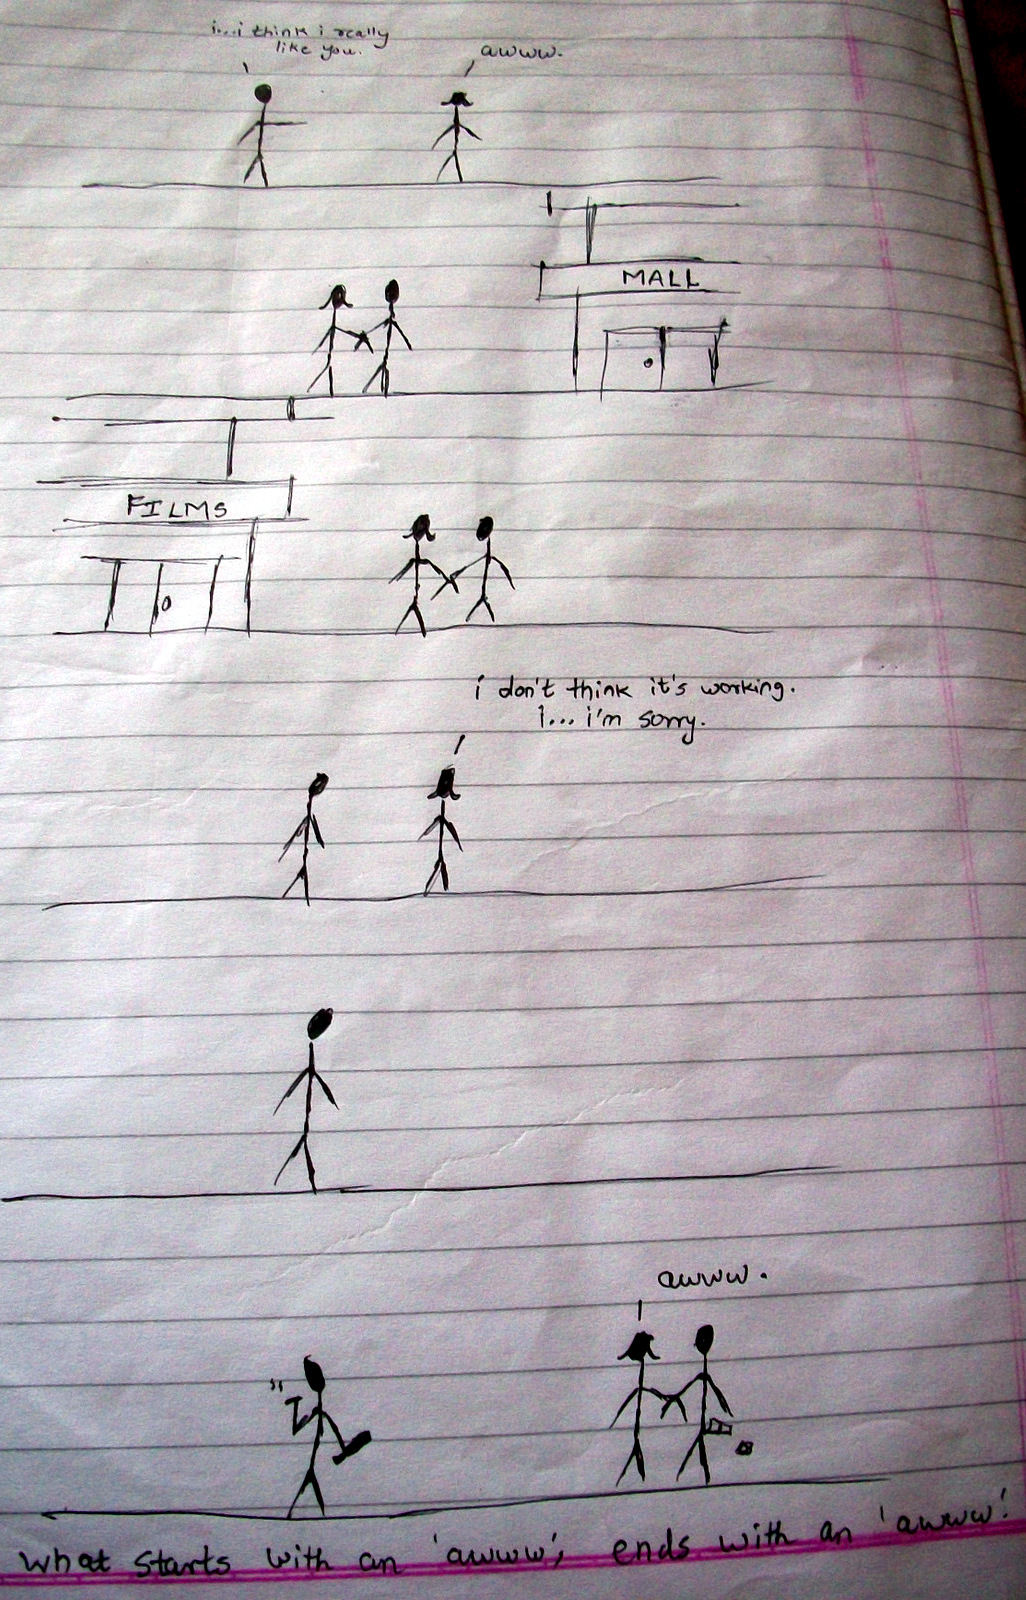 i...i think i really
like you.
awww.
MALL
FILMS
i don't think it's working.
I... i'm sorry.
awww.
what starts with an 'awww', ends with an 'awww'.